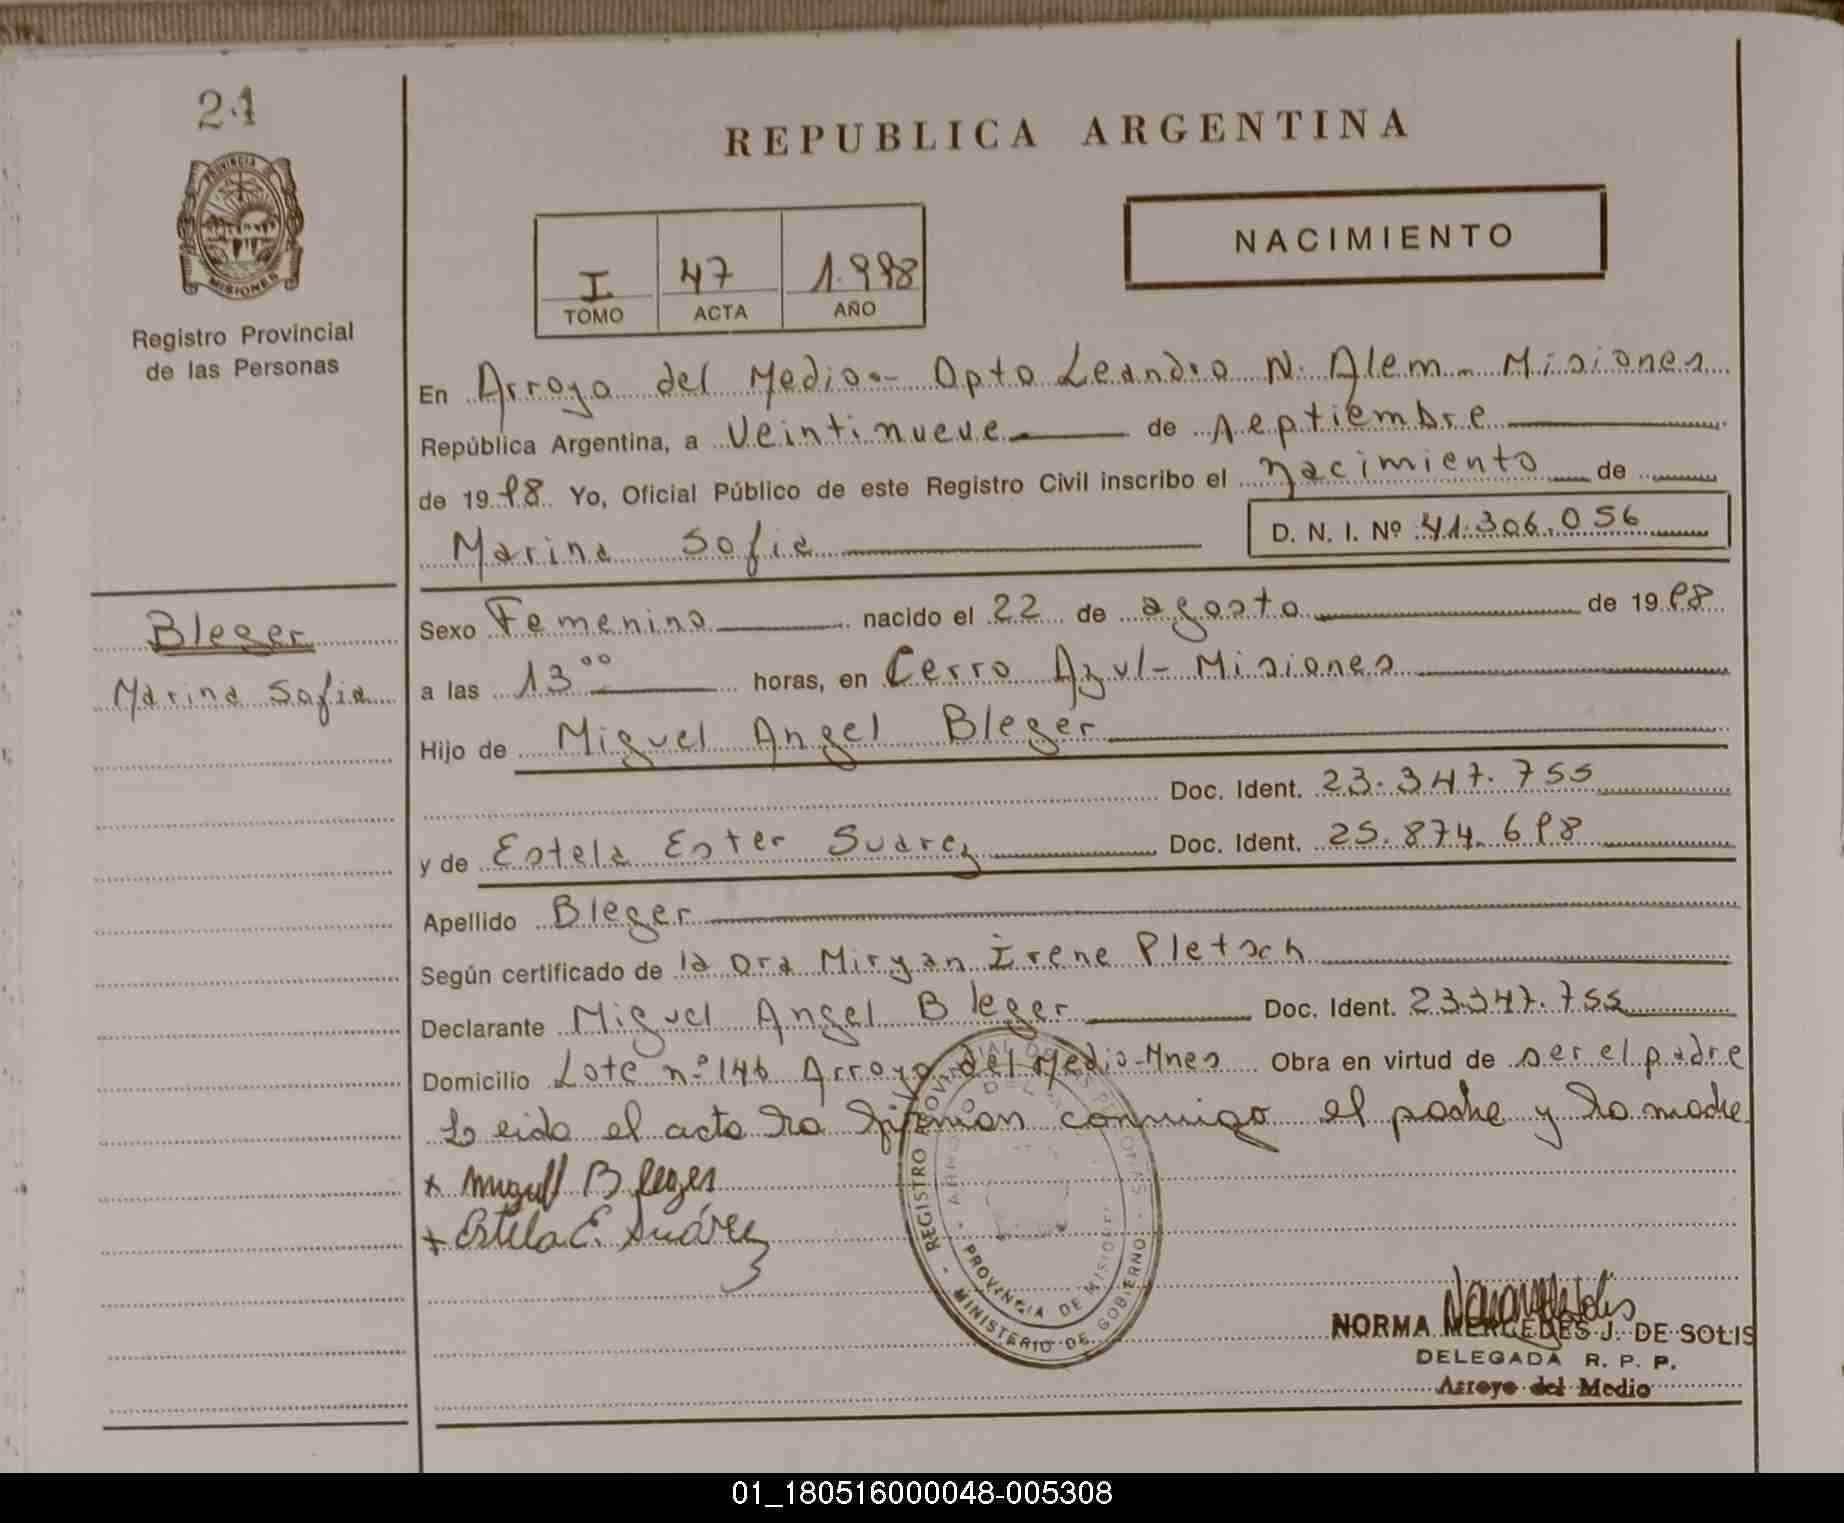 24
PROVINCIA
MISIONES
Registro Provincial
de las Personas
REPUBLICA ARGENTINA
NACIMIENTO
I 47 1.998
TOMO ACTA AÑO
En Arroyo del Medio.- Dpto Leandro N. Alem - Misiones
República Argentina, a Veintinueve de septiembre
de 1998 Yo, Oficial Público de este Registro Civil inscribo el nacimiento de
Marina Sofia D. N. I. Nº 41.306.056
Bleger
Marina Sofia
Sexo Femenino nacido el 22 de agosto de 1998
a las 13 00 horas, en Cerro Azul - Misiones
Hijo de Miguel Angel Bleger
Doc. Ident. 23.347.755
y de Estela Ester Suarez Doc. Ident. 25.874.698
Apellido Bleger
Según certificado de la Dra Miryan Irene Pletsch
Declarante Miguel Angel Bleger Doc. Ident. 23.347.755
Domicilio Lote n° 146 Arroyo del Medio-Mnes Obra en virtud de ser el padre
Leida el acta la firman conmigo el padre y la madre
x Miguel Bleger
+ Estela E. Suárez
REGISTRO PROVINCIAL DE LAS PERSONAS
ARROYO DEL
PROVINCIA DE MISIONES
MINISTERIO DE GOBIERNO
NORMA MERCEDES J. DE SOLIS
DELEGADA R. P. P.
Arroyo del Medio
01_180516000048-005308